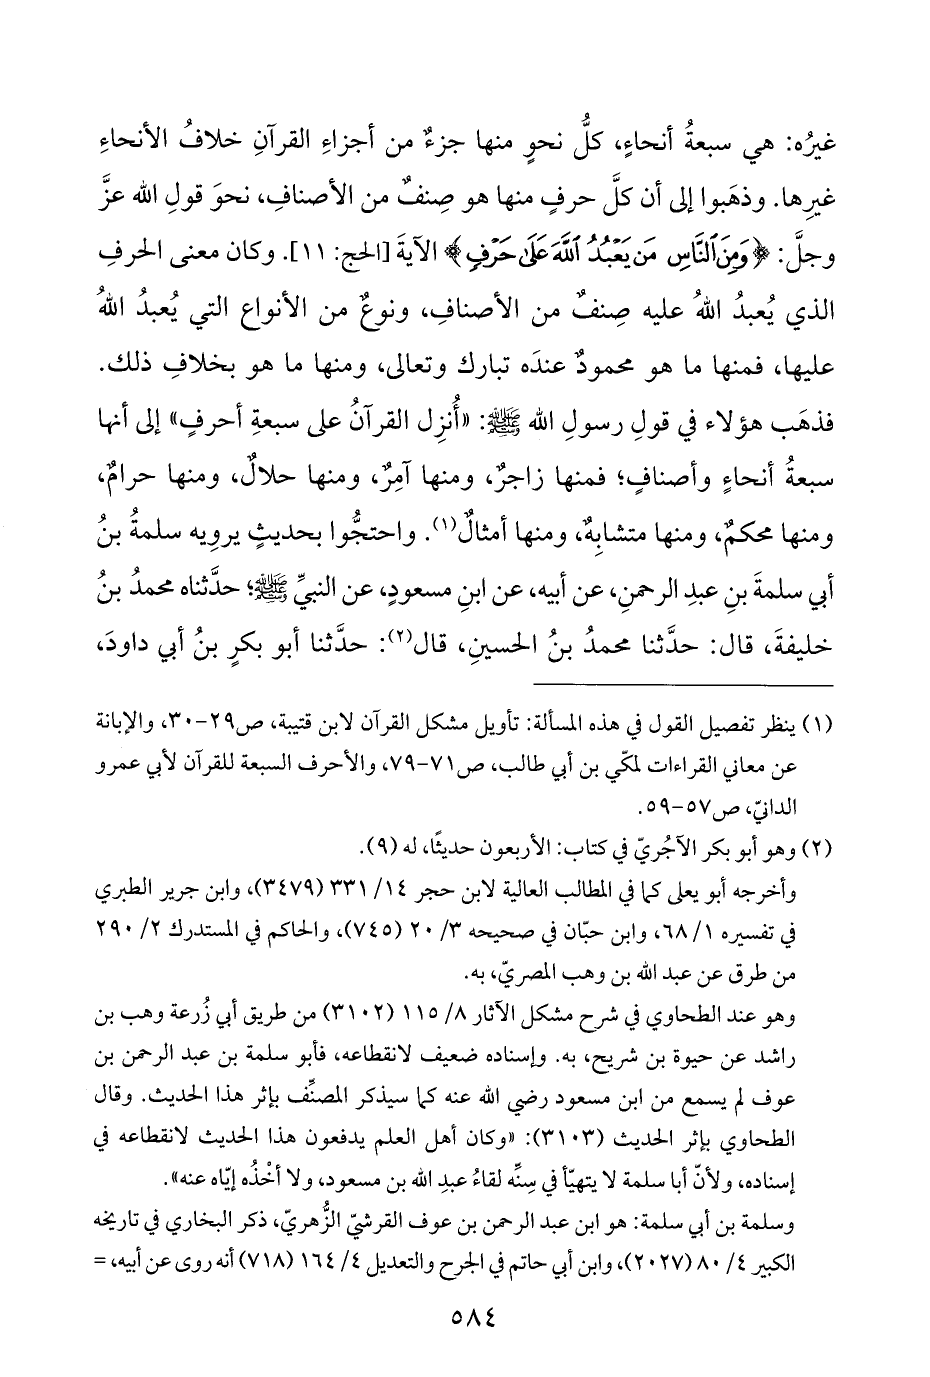 غيرُه: هي سبعةُ أنحاءٍ، كلُّ نحوٍ منها جزءٌ من أجزاءِ القرآنِ خلافُ الأنحاءِ
غيرِها. وذهَبوا إلى أن كلَّ حرفٍ منها هو صِنفٌ من الأصنافِ، نحوَ قولِ الله عزَّ
وجلَّ: ﴿وَمِنَ ٱلنَّاسِ مَن يَعْبُدُ ٱللَّهَ عَلَىٰ حَرْفٍ﴾ الآيةَ [الحج: ١١]. وكان معنى الحرفِ
الذي يُعبدُ اللهُ عليه صِنفٌ من الأصنافِ، ونوعٌ من الأنواع التي يُعبدُ اللهُ
عليها، فمنها ما هو محمودٌ عندَه تبارك وتعالى، ومنها ما هو بخلافِ ذلك.
فذهَب هؤلاء في قولِ رسولِ الله ﷺ: «أُنزِل القرآنُ على سبعةِ أحرفٍ» إلى أنها
سبعةُ أنحاءٍ وأصنافٍ؛ فمنها زاجرٌ، ومنها آمِرٌ، ومنها حلالٌ، ومنها حرامٌ،
ومنها محكمٌ، ومنها متشابِهٌ، ومنها أمثالٌ(١). واحتجُّوا بحديثٍ يرويه سلمةُ بنُ
أبي سلمةَ بنِ عبدِ الرحمنِ، عن أبيه، عن ابنِ مسعودٍ، عن النبيِّ ﷺ؛ حدَّثناه محمدُ بنُ
خليفةَ، قال: حدَّثنا محمدُ بنُ الحسينِ، قال(٢): حدَّثنا أبو بكرٍ بنُ أبي داودَ،
(١) ينظر تفصيل القول في هذه المسألة: تأويل مشكل القرآن لابن قتيبة، ص٢٩-٣٠، والإبانة
عن معاني القراءات لمكّي بن أبي طالب، ص٧١-٧٩، والأحرف السبعة للقرآن لأبي عمرو
الدانيّ، ص٥٧-٥٩.
(٢) وهو أبو بكر الآجُريّ في كتاب: الأربعون حديثًا، له (٩).
وأخرجه أبو يعلى كما في المطالب العالية لابن حجر ١٤/ ٣٣١ (٣٤٧٩)، وابن جرير الطبري
في تفسيره ١/ ٦٨، وابن حبّان في صحيحه ٣/ ٢٠ (٧٤٥)، والحاكم في المستدرك ٢/ ٢٩٠
من طرق عن عبد الله بن وهب المصريّ، به.
وهو عند الطحاوي في شرح مشكل الآثار ٨/ ١١٥ (٣١٠٢) من طريق أبي زُرعة وهب بن
راشد عن حيوة بن شريح، به. وإسناده ضعيف لانقطاعه، فأبو سلمة بن عبد الرحمن بن
عوف لم يسمع من ابن مسعود رضي الله عنه كما سيذكر المصنِّف بإثر هذا الحديث. وقال
الطحاوي بإثر الحديث (٣١٠٣): «وكان أهل العلم يدفعون هذا الحديث لانقطاعه في
إسناده، ولأنّ أبا سلمة لا يتهيّأ في سِنِّه لقاءُ عبدِ الله بن مسعود، ولا أخْذُه إيّاه عنه».
وسلمة بن أبي سلمة: هو ابن عبد الرحمن بن عوف القرشيّ الزُّهريّ، ذكر البخاري في تاريخه
الكبير ٤/ ٨٠ (٢٠٢٧)، وابن أبي حاتم في الجرح والتعديل ٤/ ١٦٤ (٧١٨) أنه روى عن أبيه، =
٥٨٤